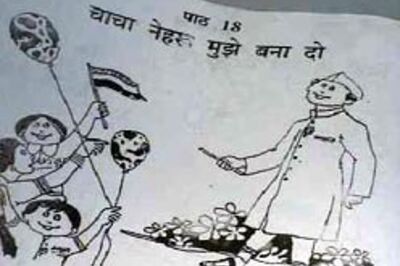 पाठ 18
चाचा नेहरू मुझे बना दो